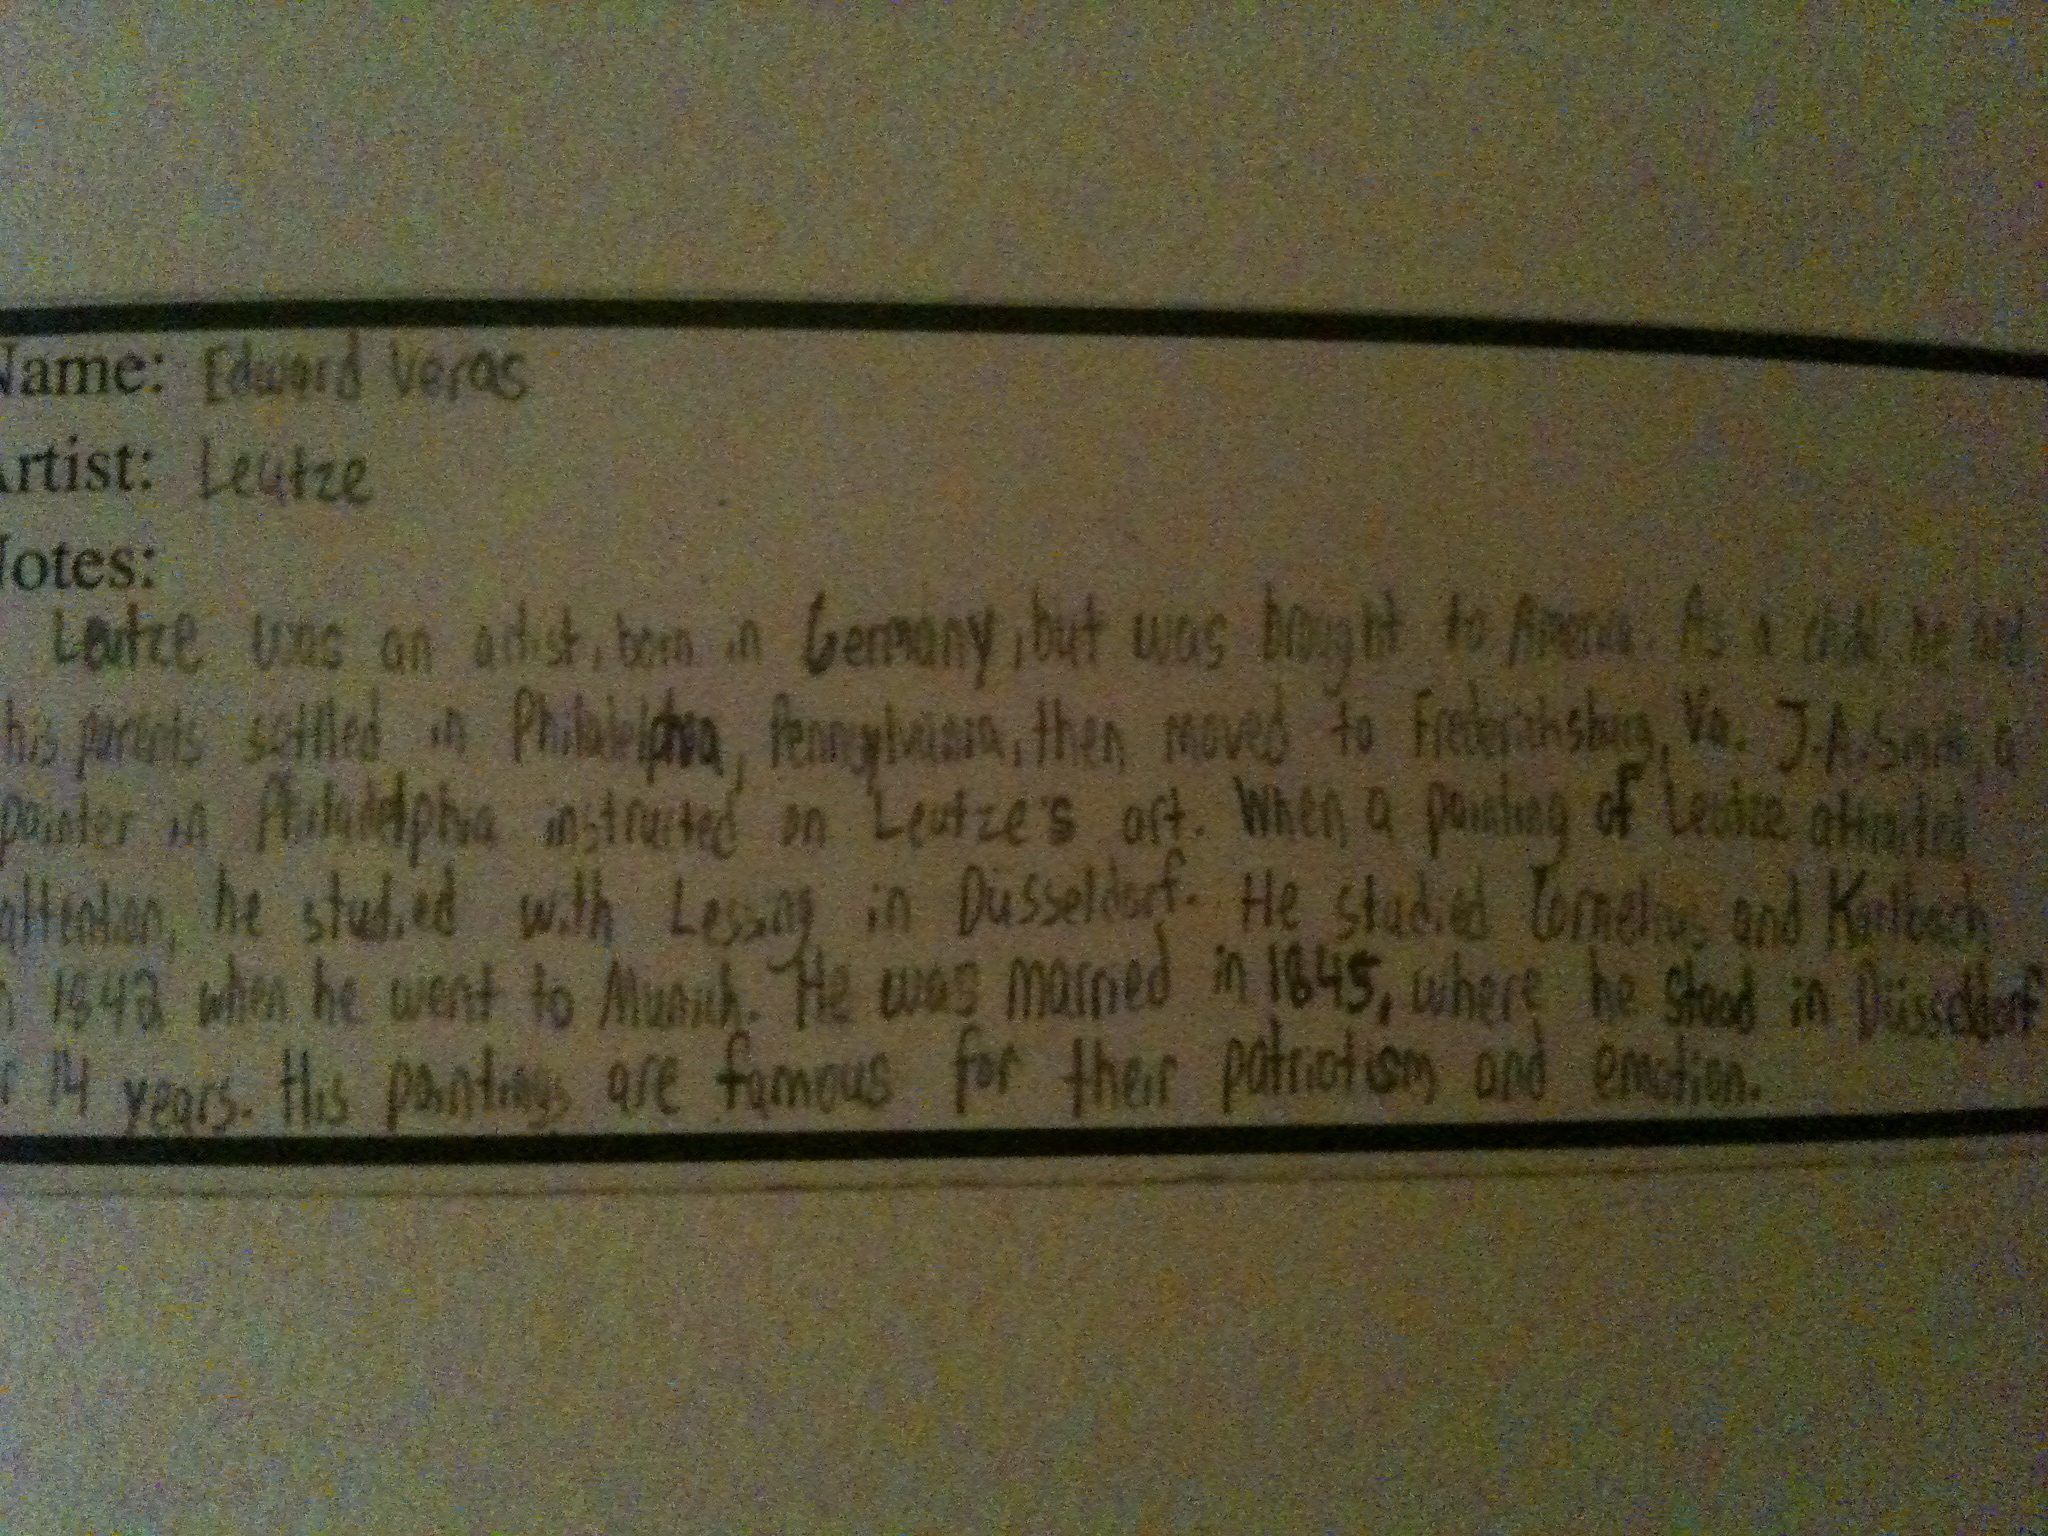 Name: Edward Veras
Artist: Leutze
Notes:
Leutze was an artist, born in Germany, but was brought to America. As a child he and
his parents settled in Philadelphia, Pennsylvania, then moved to Fredericksburg, Va. J.A. Smith, a
painter in Philadelphia instructed on Leutze's art. When a painting of Leutze attracted
attention, he studied with Lessing in Düsseldorf. He studied Cornelius and Karlbach
1842 when he went to Munich. He was married in 1845, where he stood in Düsseldorf
14 years. His paintings are famous for their patriotism and emotion.